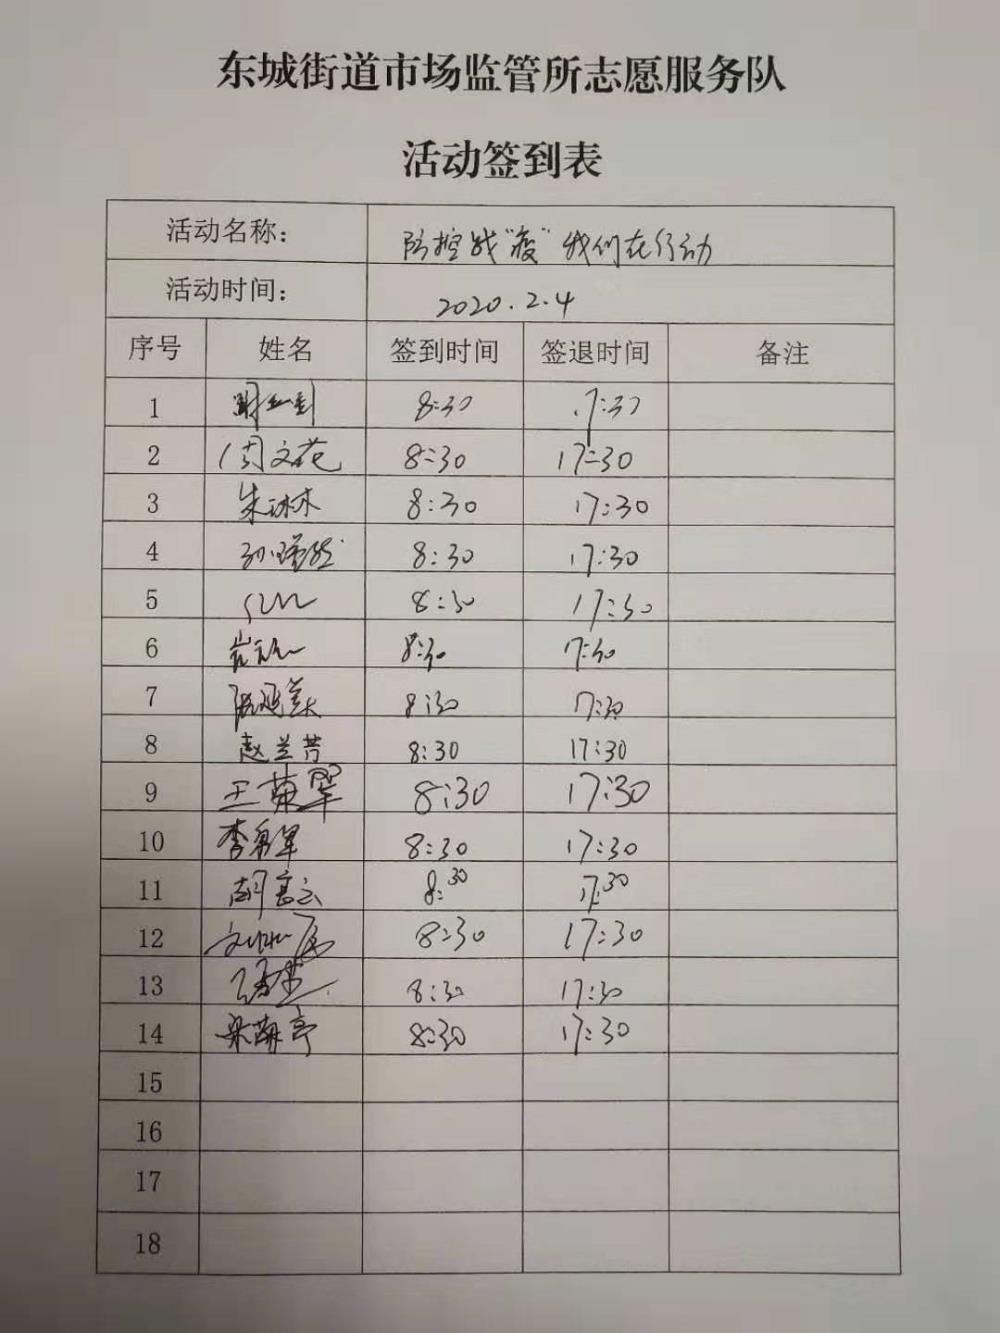 东城街道市场监管所志愿服务队
活动签到表
活动名称: 防控战"疫"我们在行动
活动时间: 2020.2.4
序号 姓名 签到时间 签退时间 备注
1 8:30 17:30
2 周文花 8:30 17:30
3 朱冰冰 8:30 17:30
4 8:30 17:30
5 8:30 17:30
6 8:30 17:30
7 8:30 17:30
8 赵兰芳 8:30 17:30
9 王菊翠 8:30 17:30
10 8:30 17:30
11 8:30 17:30
12 8:30 17:30
13 8:30 17:30
14 8:30 17:30
15
16
17
18